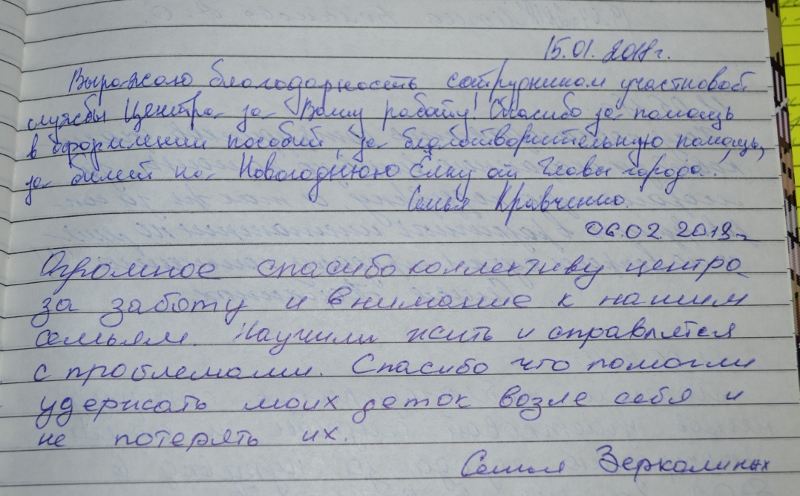 15.01.2018г.
Выражаю благодарность сотрудником участковой
службы Центра за Вашу работу! Спасибо за помощь
в оформлении пособий, за благотворительную помощь,
за билет на Новогоднюю Ёлку от Главы города.
Семья Кравченко.
06.02.2018г
Огромное спасибо коллективу центра
за заботу и внимание к нашим
семьям. Научили жить и справлятся
с проблемами. Спасибо что помогли
удержать моих деток возле себя и
не потерять их.
Семья Зеркалиных